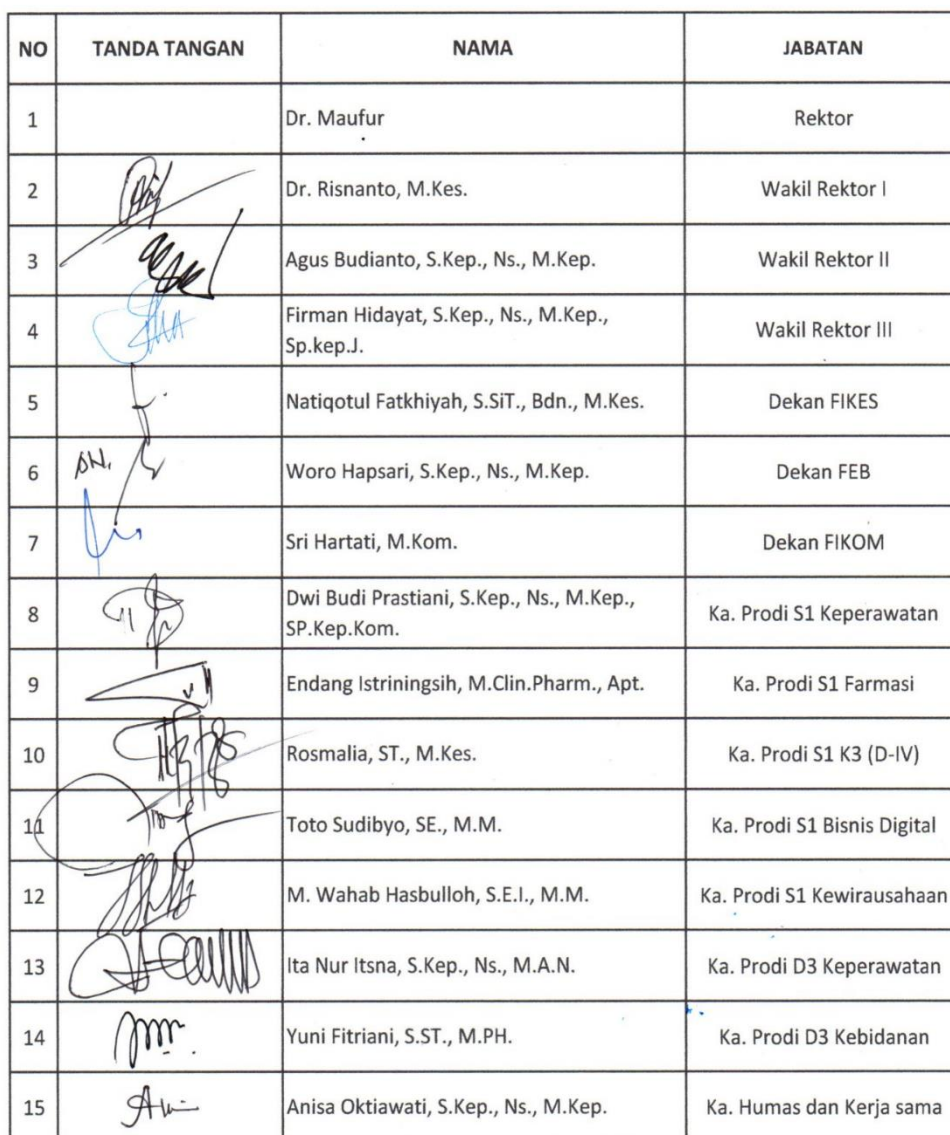 NO TANDA TANGAN NAMA JABATAN
1 Dr. Maufur Rektor
2 Dr. Risnanto, M.Kes. Wakil Rektor I
3 Agus Budianto, S.Kep., Ns., M.Kep. Wakil Rektor II
4 Firman Hidayat, S.Kep., Ns., M.Kep., Wakil Rektor III
Sp.kep.J.
5 Natiqotul Fatkhiyah, S.SiT., Bdn., M.Kes. Dekan FIKES
6 Woro Hapsari, S.Kep., Ns., M.Kep. Dekan FEB
7 Sri Hartati, M.Kom. Dekan FIKOM
8 Dwi Budi Prastiani, S.Kep., Ns., M.Kep., Ka. Prodi S1 Keperawatan
SP.Kep.Kom.
9 Endang Istriningsih, M.Clin.Pharm., Apt. Ka. Prodi S1 Farmasi
10 Rosmalia, ST., M.Kes. Ka. Prodi S1 K3 (D-IV)
11 Toto Sudibyo, SE., M.M. Ka. Prodi S1 Bisnis Digital
12 M. Wahab Hasbulloh, S.E.I., M.M. Ka. Prodi S1 Kewirausahaan
13 Ita Nur Itsna, S.Kep., Ns., M.A.N. Ka. Prodi D3 Keperawatan
14 Yuni Fitriani, S.ST., M.PH. Ka. Prodi D3 Kebidanan
15 Anisa Oktiawati, S.Kep., Ns., M.Kep. Ka. Humas dan Kerja sama